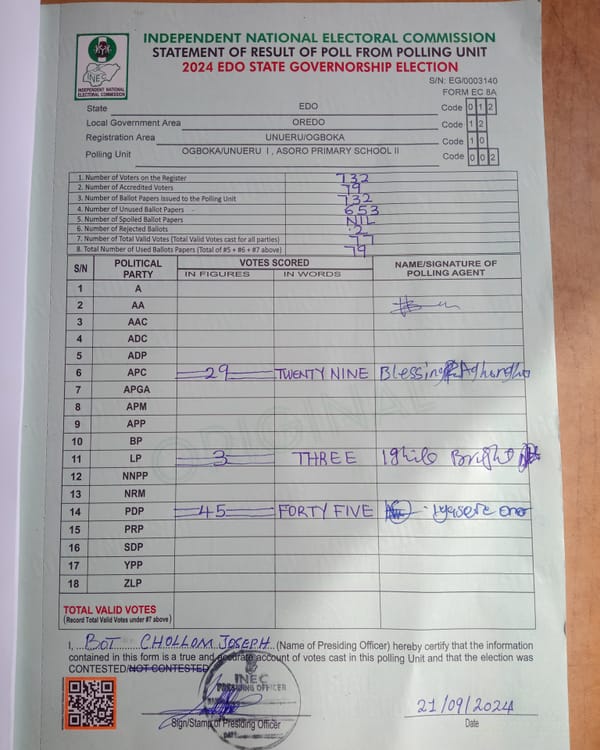 INDEPENDENT NATIONAL ELECTORAL COMMISSION
STATEMENT OF RESULT OF POLL FROM POLLING UNIT
2024 EDO STATE GOVERNORSHIP ELECTION
INEC
INDEPENDENT NATIONAL
ELECTORAL COMMISSION
S/N: EG/0003140
FORM EC 8A
State EDO Code 0 1 2
Local Government Area OREDO Code 1 2
Registration Area UNUERU/OGBOKA Code 1 0
Polling Unit OGBOKA/UNUERU I , ASORO PRIMARY SCHOOL II Code 0 0 2
1. Number of Voters on the Register 732
2. Number of Accredited Voters 79
3. Number of Ballot Papers Issued to the Polling Unit 732
4. Number of Unused Ballot Papers 653
5. Number of Spoiled Ballot Papers NIL
6. Number of Rejected Ballots 2
7. Number of Total Valid Votes (Total Valid Votes cast for all parties) 77
8. Total Number of Used Ballots Papers (Total of #5 + #6 + #7 above) 79
S/N POLITICAL PARTY VOTES SCORED NAME/SIGNATURE OF POLLING AGENT
IN FIGURES IN WORDS
1 A
2 AA
3 AAC
4 ADC
5 ADP
6 APC 29 TWENTY NINE Blessing
7 APGA
8 APM
9 APP
10 BP
11 LP 3 THREE Bright
12 NNPP
13 NRM
14 PDP 45 FORTY FIVE
15 PRP
16 SDP
17 YPP
18 ZLP
ORIGINAL
TOTAL VALID VOTES
(Record Total Valid Votes under #7 above)
I, BOT CHOLLOM JOSEPH (Name of Presiding Officer) hereby certify that the information
contained in this form is a true and accurate account of votes cast in this polling Unit and that the election was
CONTESTED/NOT CONTESTED
INEC
PRESIDING OFFICER
DATE
21/09/2024
Sign/Stamp of Presiding Officer Date